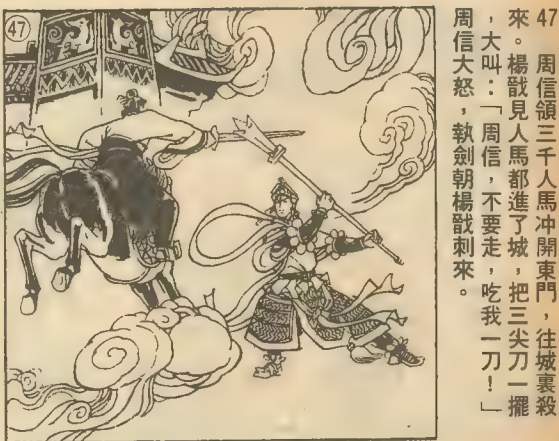 47
47　周信領三千人馬冲開東門，往城裏殺
來。楊戩見人馬都進了城，把三尖刀一擺
，大叫：「周信，不要走，吃我一刀！」
周信大怒，執劍朝楊戩刺來。